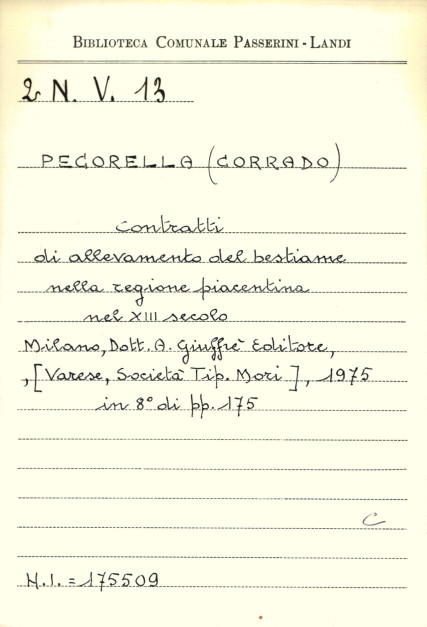 BIBLIOTECA COMUNALE PASSERINI - LANDI
2 N. V. 13
PEGORELLA (CORRADO)
Contratti
di allevamento del bestiame
nella regione piacentina
nel XIII secolo
Milano, Dott. A. Giuffrè Editore,
, [Varese, Società Tip. Mori], 1975
in 8° di pp. 175
C
N.I. = 175509